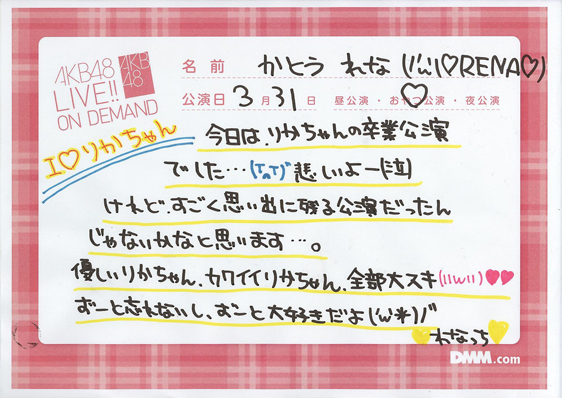 AKB48
LIVE!!
ON DEMAND
AKB
48
名前 かとう れな (ї'ω'ї♡RENA♡)
公演日 3月31日 昼公演・おやつ公演・夜公演
I♡りかちゃん
今日は、りかちゃんの卒業公演
でした…(T_T)悲しいよー(泣)
けれど、すごく思い出に残る公演だったん
じゃないかなと思います…。
優しいりかちゃん、カワイイりかちゃん、全部大スキ(ııωıı)♥♥
ずーと忘れないし、ずーと大好きだよ(ω*)ノ"
れなっち
DMM.com